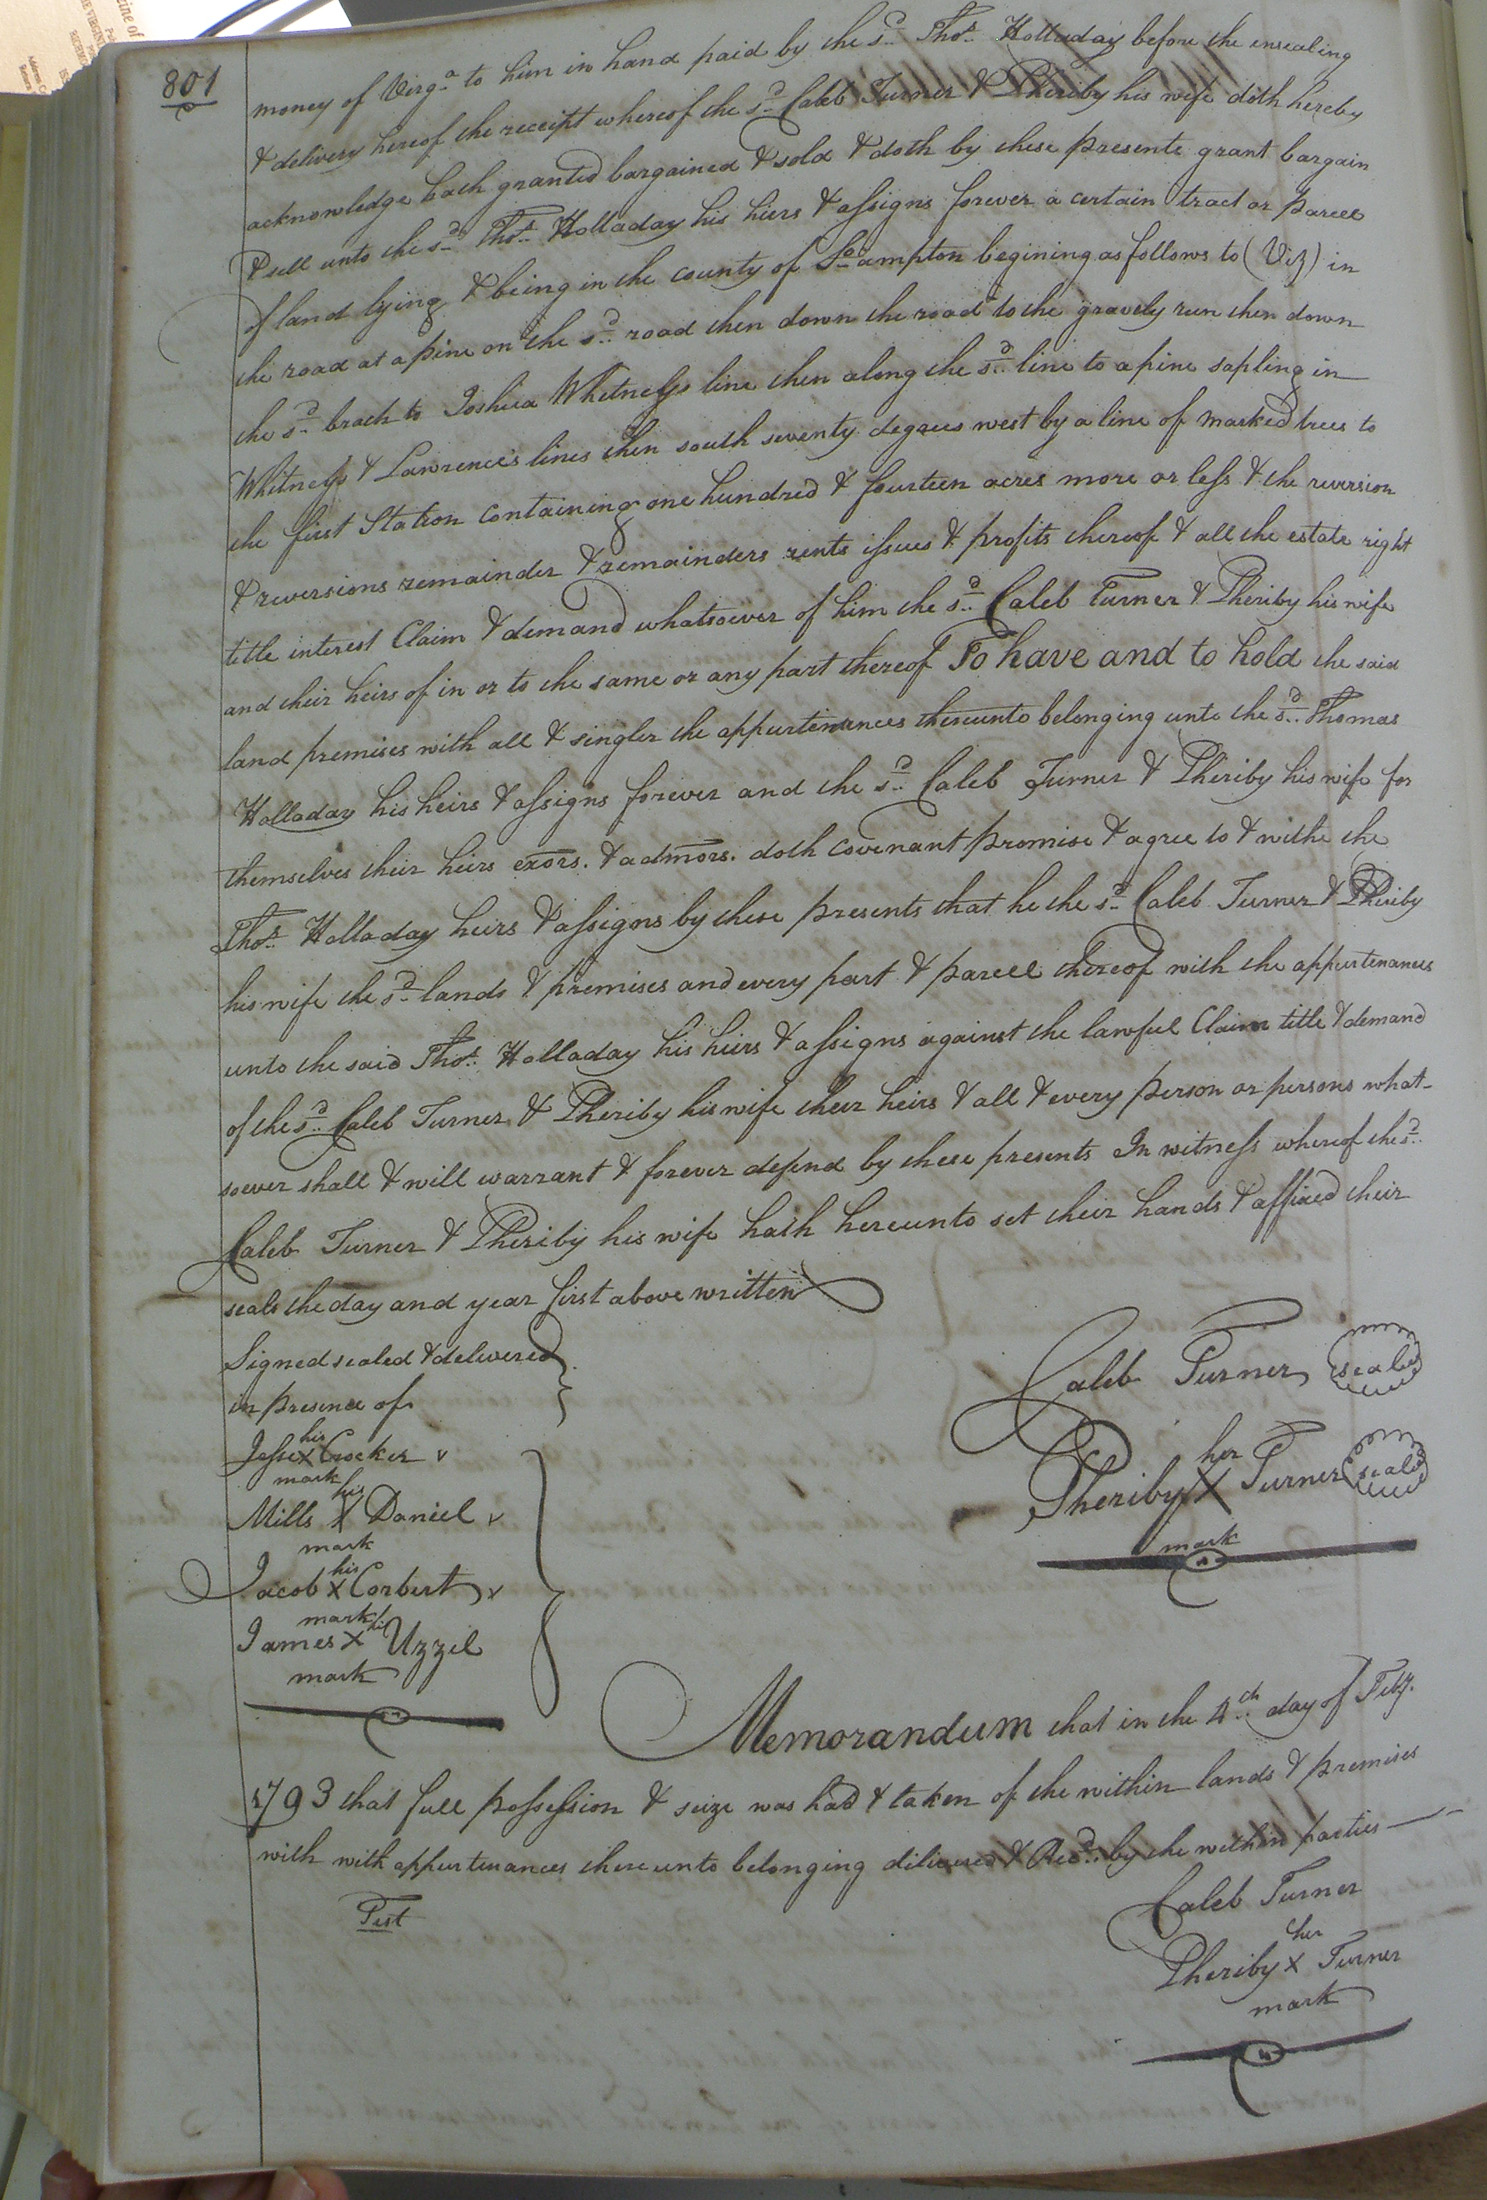 801
money of Virga. to him in hand paid by the sd. Thos. Holladay before the ensealing
& delivery hereof the receipt whereof the sd. Caleb Turner & Pheriby his wife doth hereby
acknowledge hath granted bargained & sold & doth by these presents grant bargain
& sell unto the sd. Thos. Holladay his hiers & assigns forever a certain tract or parcel
of land lying & being in the county of So.ampton begining as follows to (Viz) in
the road at a pine on the sd. road then down the road to the gravely run then down
the sd. brach to Joshua Whitneys line then along the sd. line to a pine sapling in
Whitneys & Lawrence's lines then south seventy degrees west by a line of marked trees to
the first Station containing one hundred & fourteen acres more or less & the reversion
& reversions remainder & remainders rents issues & profits thereof & all the estate right
title interest Claim & demand whatsoever of him the sd. Caleb Turner & Pheriby his wife
and their heirs of in or to the same or any part thereof To have and to hold the said
land premises with all & singler the appurtenances thereunto belonging unto the sd. Thomas
Holladay his heirs & assigns forever and the sd. Caleb Turner & Pheriby his wife for
themselves their heirs exors. & admors. doth covenant promise & agree to & withe the
Thos. Holladay heirs & assigns by these presents that he the sd. Caleb Turner & Pheriby
his wife the sd. lands & premises and every part & parcel thereof with the appurtenances
unto the said Thos. Holladay his heirs & assigns against the lawful Claim title & demand
of the sd. Caleb Turner & Pheriby his wife their heirs & all & every person or persons what-
soever shall & will warrant & forever defend by these presents In witness whereof the sd.
Caleb Turner & Pheriby his wife hath hereunto set their hands & affixed their
seals the day and year first above written
Signed sealed & delivered
in presence of
Caleb Turner seal
his
Jesse X Crocker v
mark
her
Pheriby X Turner seal
mark
his
Mills X Daniel v
mark
his
Jacob X Corbert v
mark
his
James X Uzzel
mark
Memorandum that in the 4th. day of Feby.
1793 that full possession & seize was had & taken of the within lands & premises
with with appurtenances thereunto belonging delivered & Recd. by the within parties
Test
Caleb Turner
her
Pheriby X Turner
mark